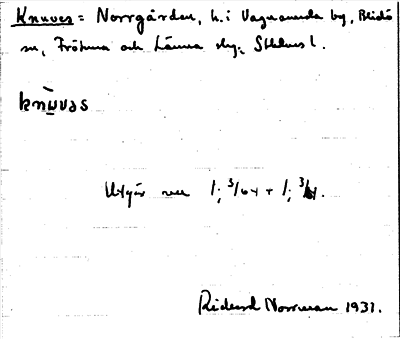 Knuves = Norrgården, h. i Vagnsunda by, Blidö
sn, Frötuna och Länna skg., Sthlms l.
knu̬̇vas
Utgör nu 1; 3/64 + 1; 3/64.
Rickard Norrman 1931.